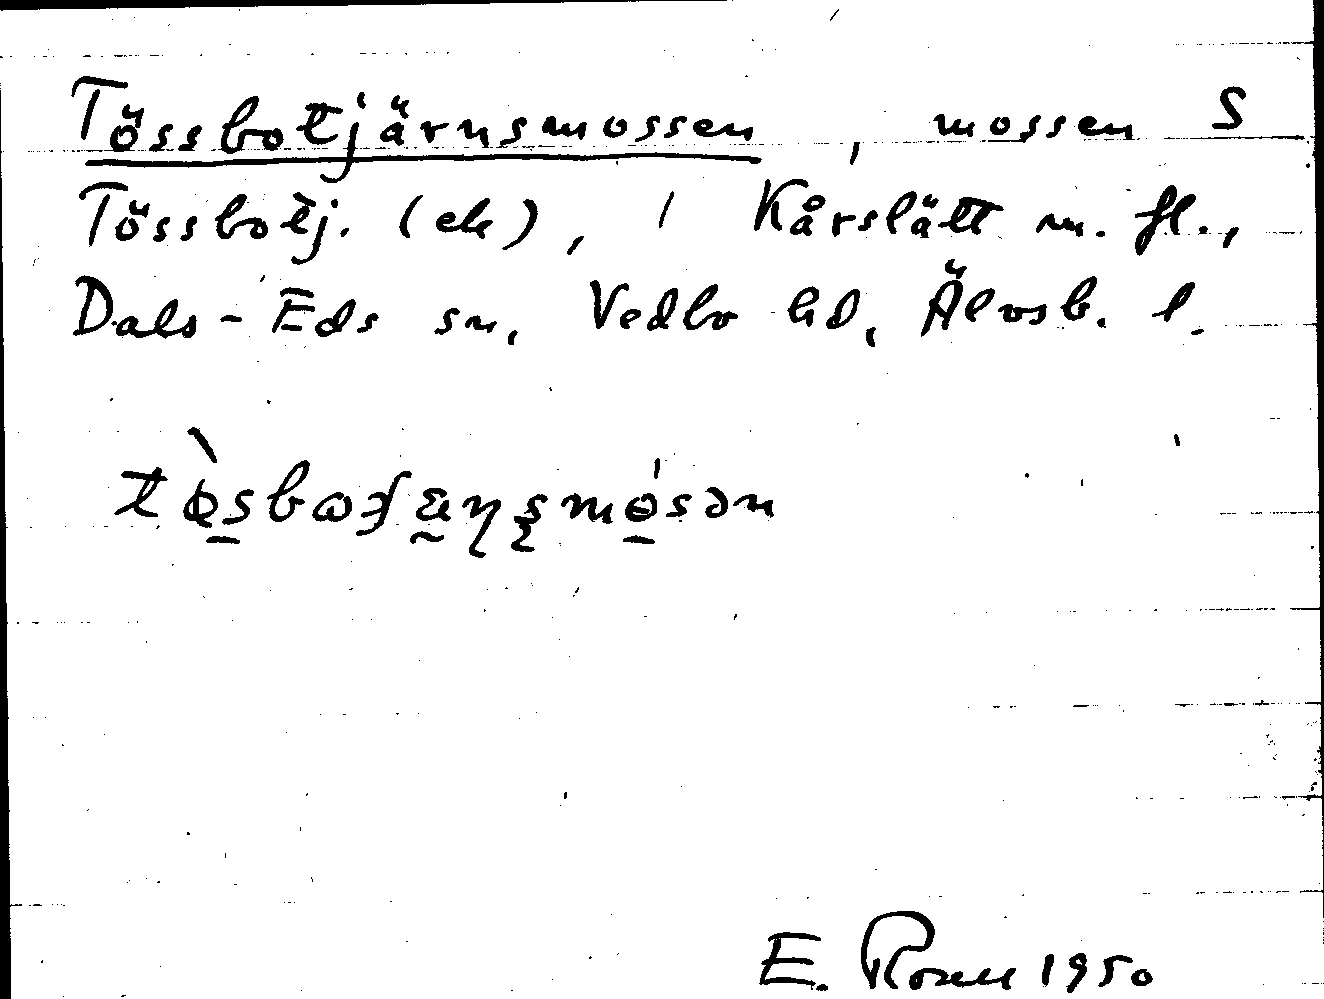 Tössbotjärnsmossen, mossen S
Tössbotj. (ek), i Kårslätt m. fl.,
Dals-Eds sn, Vedbo hd, Älvsb. l.
E. Rosell 1950